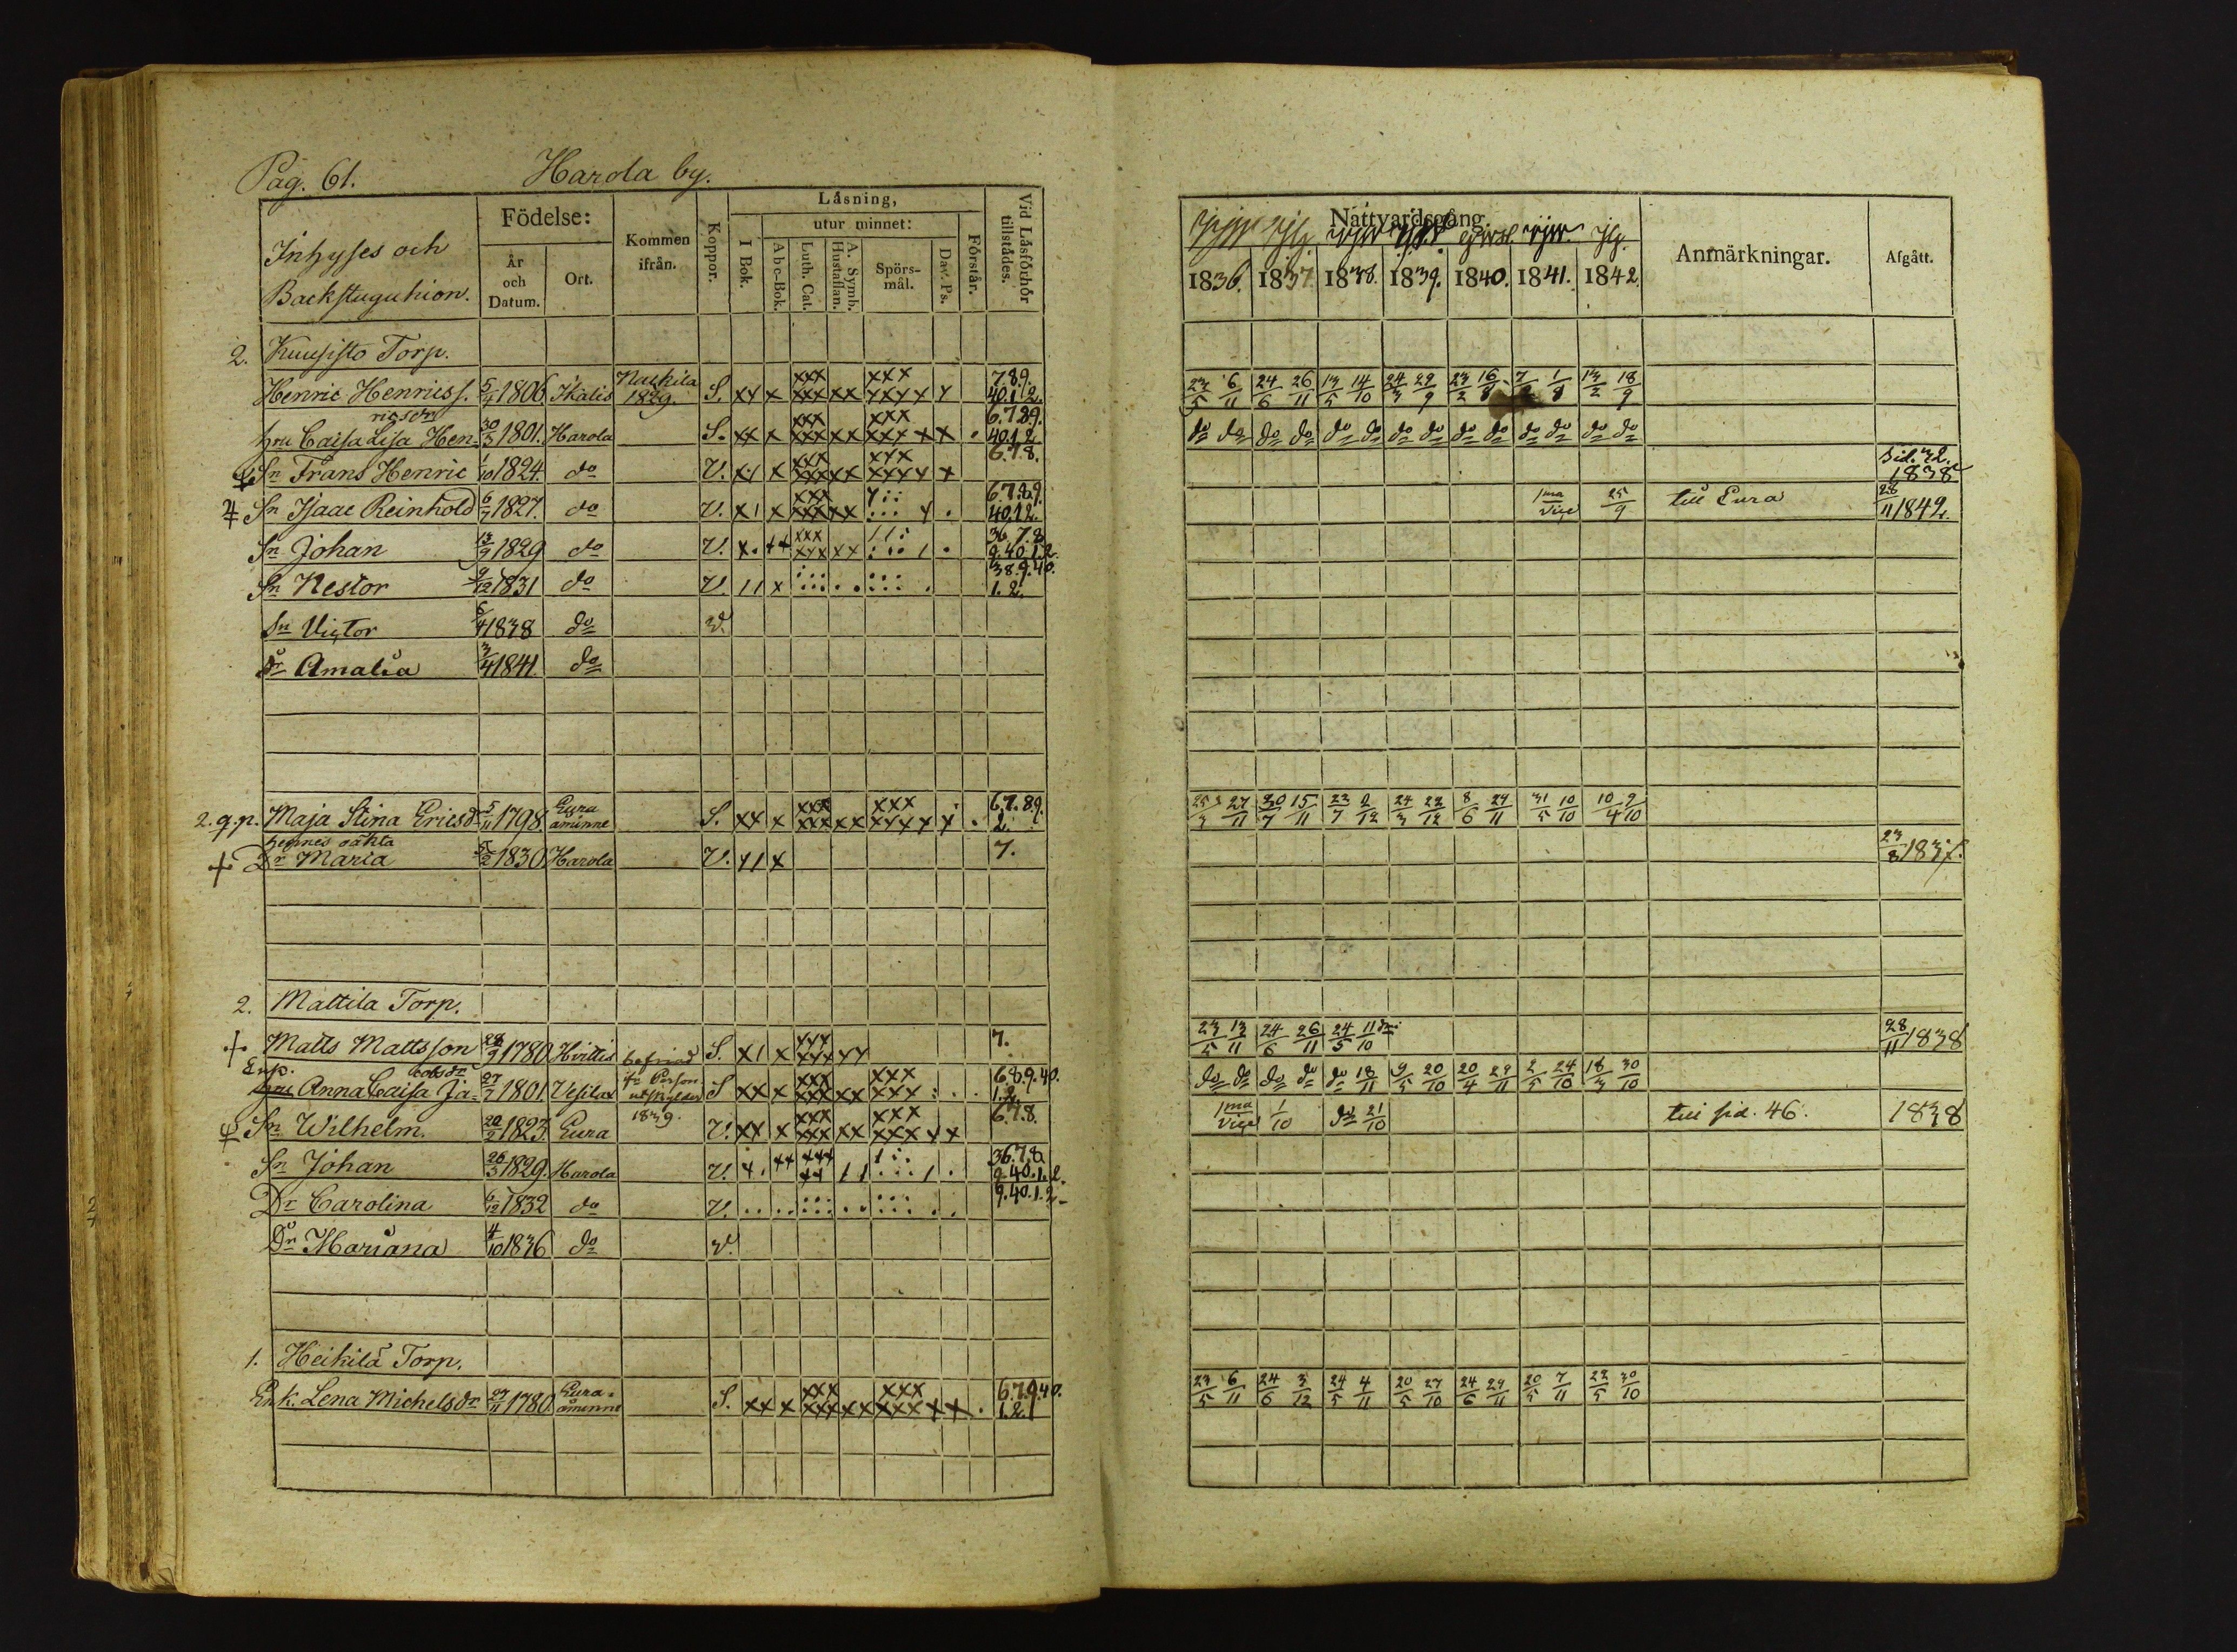 Pag. 61. Harola by.
Inhyses och
Backstuguhion.
Födelse:
År och Datum.
Ort.
Kommen ifrån.
Koppor.
Läsning,
I Bok.
utur minnet:
Abc-Bok.
Luth. Cat.
A. Symb. Hustaflan.
Spörs-mål.
Dav. Ps.
Förstår.
Vid Läsförhör tillstådes.
Nattvardsgång.
1836. 1837. 1838. 1839. 1840. 1841. 1842.
Anmärkningar.
Afgått.
2. Kuusisto Torp.
Henric Henricss. 5/4 1806. Ikalis Nackila 1829. S. xx x xxx xxx xx xxx xxxx x 7.8.9. 40.1.2. 23/5 6/11 24/6 26/11 13/5 14/10 24/3 29/9 23/2 16/8 1/8 13/2 18/9
hru Caisa Lisa Henricsdr 30/3 1801. Harola S. xx x xxx xxx xx xxx xxx x x . 6.7.8.9. 40.1.2. do do do do do do do do do do do do do do
Sn Frans Henric 1/10 1824. do V. x x xxx xxx xx xxx xxxx x 6.7.8. Sid. 32. 1838
Sn Isaac Reinhold 6/7 1827. do V. x 1 x xxx xxx xx 6.7.8.9. 40.1.2. 1ma vice 25/9 till Eura 28/11 1842.
Sn Johan 13/9 1829 do V. x . xx xxx xxx xx 36.7.8. 9.40.1.2.
Sn Nestor 9/12 1831 do V. 1 1 x 38.9.40. 1.2.
Sn Victor 6/4 1838 do V.
Dr Amalia 3/4 1841. do
2.q.p. Maja Stina Ericsd. 5/11 1798. Eura åminne S. xx x xxx xxx xx xxx xxxx x . 6.7.8.9. 2. 25/3 27/11 30/7 15/11 23/7 2/12 24/3 22/12 8/6 29/11 31/5 10/10 10/4 9/10
hennes oäkta
Dr Maria 5/2 1830 Harola V. x 1 x 7. 23/8 1837.
2. Mattila Torp.
Matts Mattsson 28/9 1780 Hvittis S. x 1 x xxx xxx xx 7. 23/5 13/11 24/6 26/11 24/5 11/10 28/11 1838
Enk.
hru Anna Caisa Jacobsdr 27/7 1801. Vesilax S xx x xxx xxx xx xxx xxx 6.8.9.40. 1.2. do do do do do 18/11 9/5 20/10 20/4 29/11 2/5 24/10 18/3 30/10
befriad
fr Person
utskylder
1839.
Sn Wilhelm. 20/2 1823. Eura V. xx x xxx xxx xx xxx xxx xx 6.7.8. 1ma vice 1/10 do 21/10 till sid. 46. 1838
Sn Johan 26/3 1829. Harola V. x . xx xxx xx 1 1 36.7.8. 9.40.1.2.
Dr Carolina 6/12 1832 do V. 9.40.1.2.
Dr Mariana 4/10 1836 do V.
1. Heikilä Torp.
Enk. Lena Michelsdr 27/11 1780 Eura-åminne S. xx x xxx xxx xx xxx xxx x x . 6.7.9.40. 1.2. 23/5 6/11 24/6 3/12 24/5 4/11 20/5 27/10 24/6 29/11 20/5 7/11 22/5 30/10